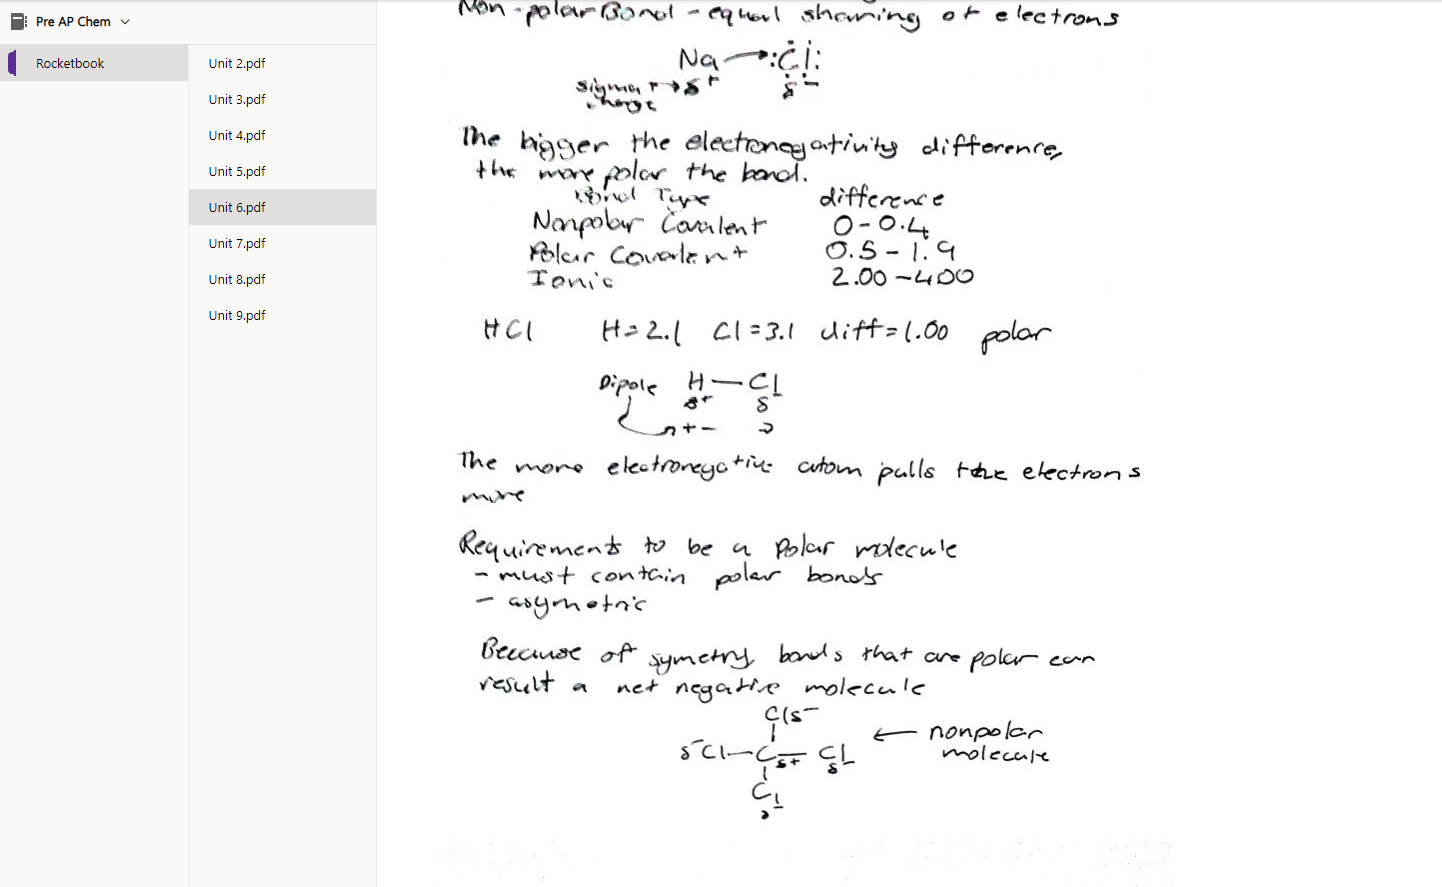 Pre AP Chem
Rocketbook
Unit 2.pdf
Unit 3.pdf
Unit 4.pdf
Unit 5.pdf
Unit 6.pdf
Unit 7.pdf
Unit 8.pdf
Unit 9.pdf
Non-polar Bond - equal sharing of electrons
Na → :Cl:
sigma + → δ+ δ-
charge
The bigger the electronegativity difference,
the more polar the bond.
Bond Type difference
Nonpolar Covalent 0-0.4
Polar Covalent 0.5-1.9
Ionic 2.00-4.00
HCl H=2.1 Cl=3.1 diff=1.00 polar
Dipole H—Cl
δ+ δ-
+-
The more electronegative atom pulls the electrons
more
Requirements to be a Polar molecule
- must contain polar bonds
- asymetric
Because of symetry, bonds that are polar can
result a net negative molecule
Clδ-
δ-Cl—C—Cl ← nonpolar
δ+ δ- molecule
Cl